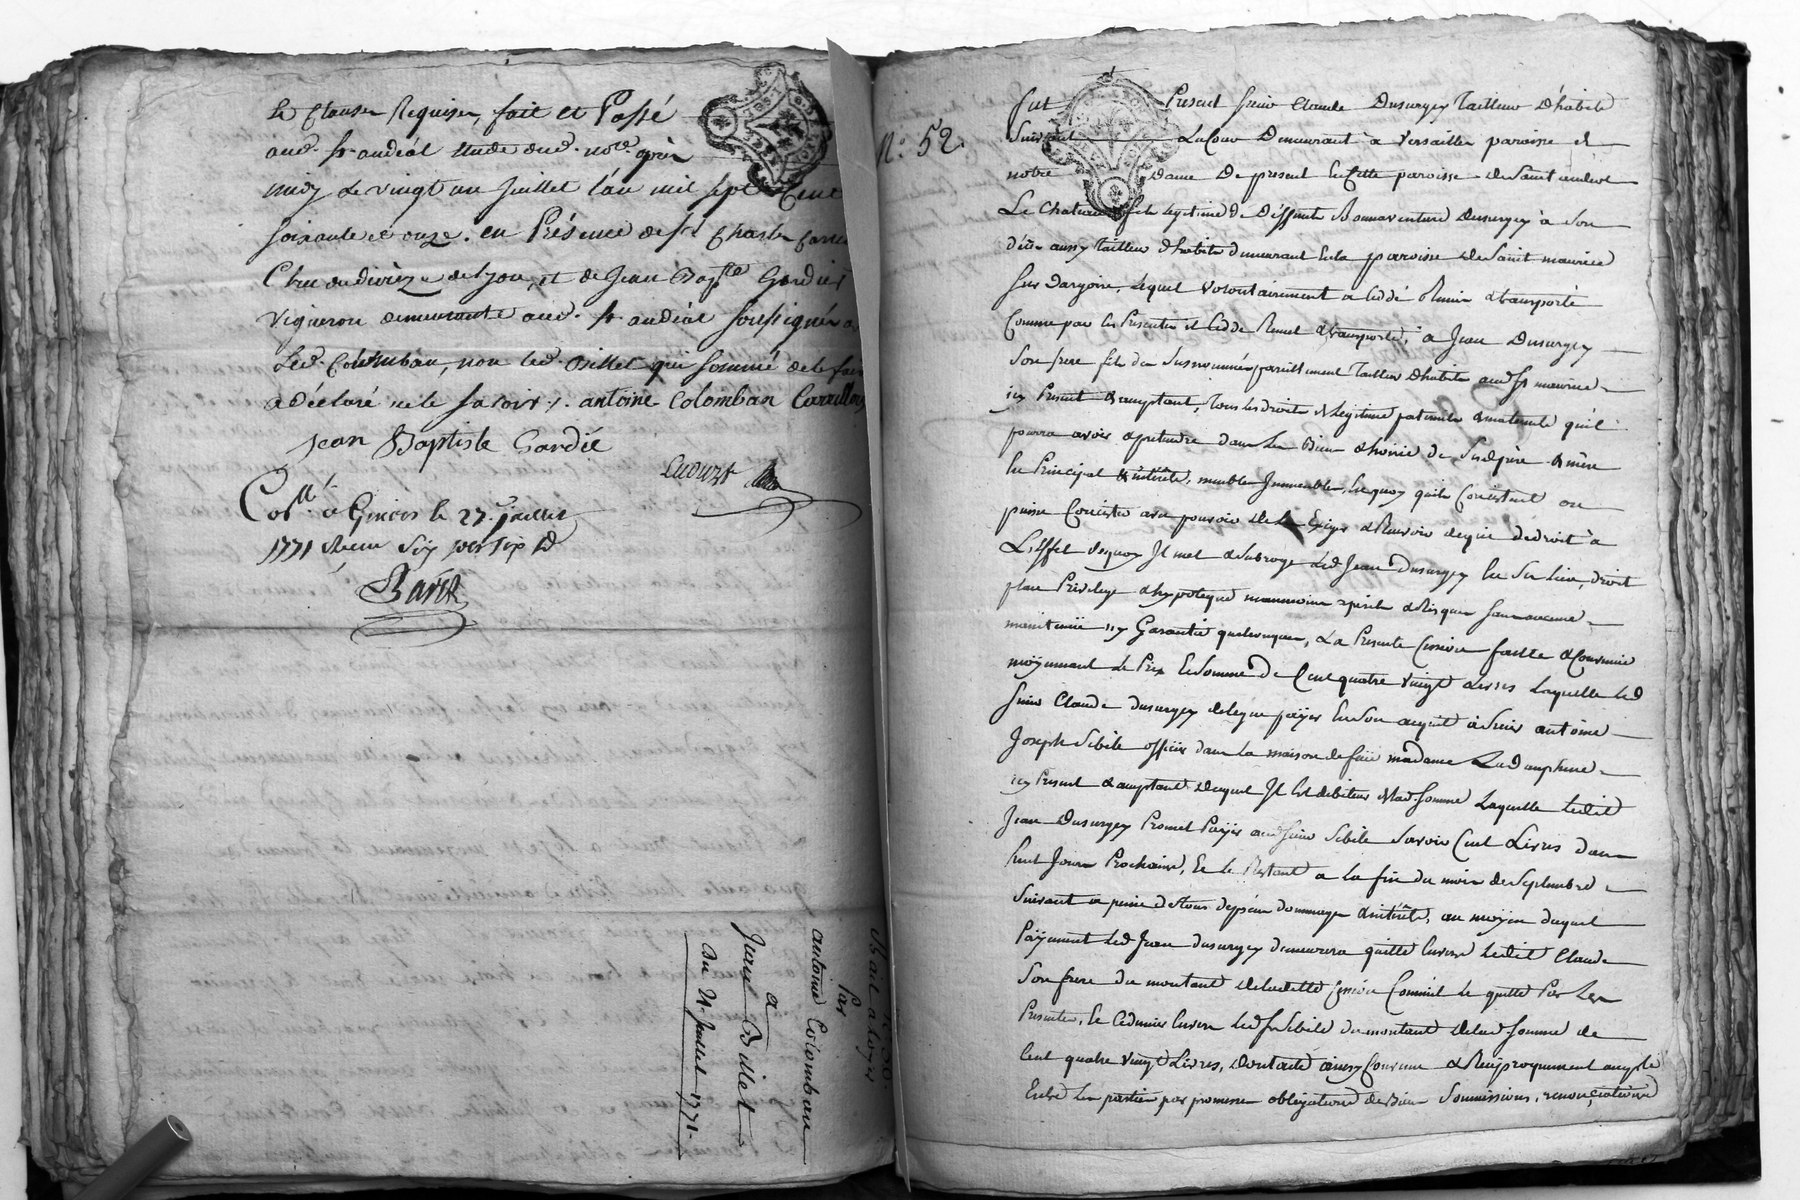 et Clauses Requises, fait et Passé
aud. St andéol Etude dud. no.re après
midy le vingt un Juillet l'an mil sept Cent
soixante et onze. en Présence de Sr Charles
Clerc du diocèze de Lyon, et de Jean Bap.te Gardier
Vigneron demeurants aud. St andéol soussignés
Led. Colomban, non led. Billet qui sommé de le faire
a déclaré ne le savoir ./. antoine Colomban
Jean Baptiste Gardié
Coll.é à Givors le 27 juillet
1771 Reçu six sols six d.
Bail a loyer
Par
antoine Colomban
a
Jean Billet
du 21 Juillet 1771
N.o 52.
fut Present sieur Claude Dusurgey Tailleur D'habits
suivant La Cour Demeurant à Versailles paroisse de
notre Dame De present en Cette paroisse de Saint andéol
Le Chateau fils legitime de Deffunt Bonnaventure Dusurgey à son
décès aussy Tailleur d'habits demeurant en la paroisse de Saint maurice
sur Dargoire, lequel volontairement a Cedé Remis & transporté
Comme par les Presentes il Cedde Remet & transporte, à Jean Dusurgey
son frere fils du susnommé pareillement Tailleur d'habits aud. St maurice
icy Present & acceptant, tous les droits de legitime paternels & maternels qu'il
pourra avoir & pretendre dans les Biens & hoirie de ses d. père & mère
en Principal & intérêts, meubles Immeubles, en quoy qu'ils Consistent ou
puisse Consister avec pouvoir de les Exiger & Recevoir ainsy que de droit à
L'effet de quoy Il met & subroge led. Jean Dusurgey en son lieu, droit
place Privilege & hypoteque neanmoins à ses perils & Risques sans aucune
maintenüe ny Garantie quelconques, La Presente Cession faitte & Convenüe
moÿennant le Prix & somme de Cent quatre vingt Livres Laquelle led.
sieur Claude Dusurgey delegue paÿer en son acquit à sieur antoine
Joseph Sibile officier dans la maison de feüe madame La Dauphine
icy Present & acceptant duquel Il est debiteur de lad. somme Laquelle ledit
Jean Dusurgey Promet Paÿer aud. sieur Sibile Savoir Cent Livres dans
huit Jours Prochains, Et le Restant a la fin du mois de Septembre
suivant a peine de tous depens dommages & intérêts, au moÿen duquel
Paÿement led. Jean Dusurgey demeurera quitte Envers ledit Claude
son frere du montant de la dette Cession Comme il le quitte Par les
Presentes, Et Ce dernier Envers led. sr Sibile du montant de lad. somme de
Cent quatre vingt Livres, dont acte ainsy Convenu & Reciproquement accepté
Entre les parties par promesses obligations de Biens Soumissions, renonciations